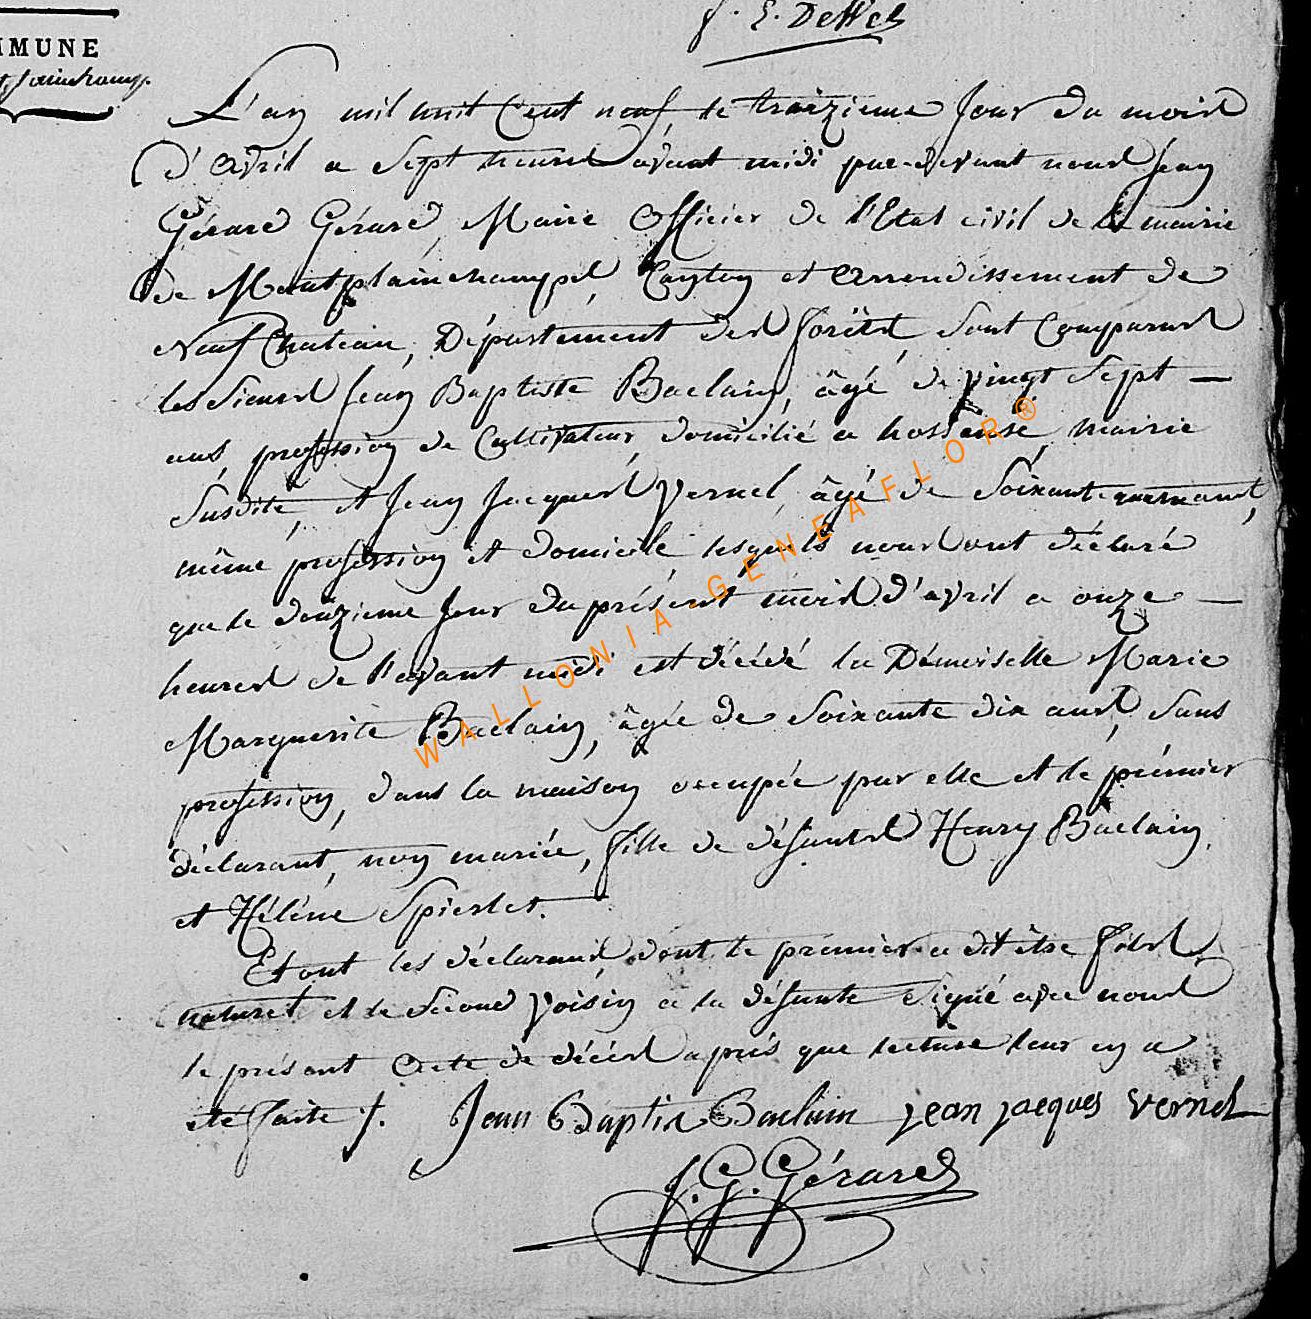 J. E. Dewez
MMUNE
L'an mil huit Cent neuf, le traizieme Jour du mois
d'Avril a Sept heures avant midi par-devant nous Jean
Gérard Gérard, Maire Officier de l'Etat civil de la mairie
de Montplainchamps, Canton et Arrondissement de
Neufchateau, Département des forêts sont Comparus
les Sieurs Jean Baptiste Baclain, âgé de vingt Sept —
ans, profession de Cultivateur, domicilié a hosseuse, mairie
susdite, et Jean Jacques Vernel, âgé de Soixante
même profession et domicile lesquels nous ont déclaré
que le douzieme Jour du présent mois d'avril a onze —
heures de l'avant midi est décédé la Démoiselle Marie
Marguerite Baclain, âgée de Soixante dix ans, Sans
profession, dans la maison occupée par elle et le prémier
déclarant, non mariée, fille de défunts Henry Baclain,
et Hélène Spierlet.
Et ont les déclarans, dont le premier a dit être
naturel et le Second Voisin a la défunte Signé avec nous
le présent Acte de décès après que lecture leur en a
été faite /. Jean Baptis Baclain jean jacques vernel
J. G. Gérard
WALLONIA GENEAFLOR®